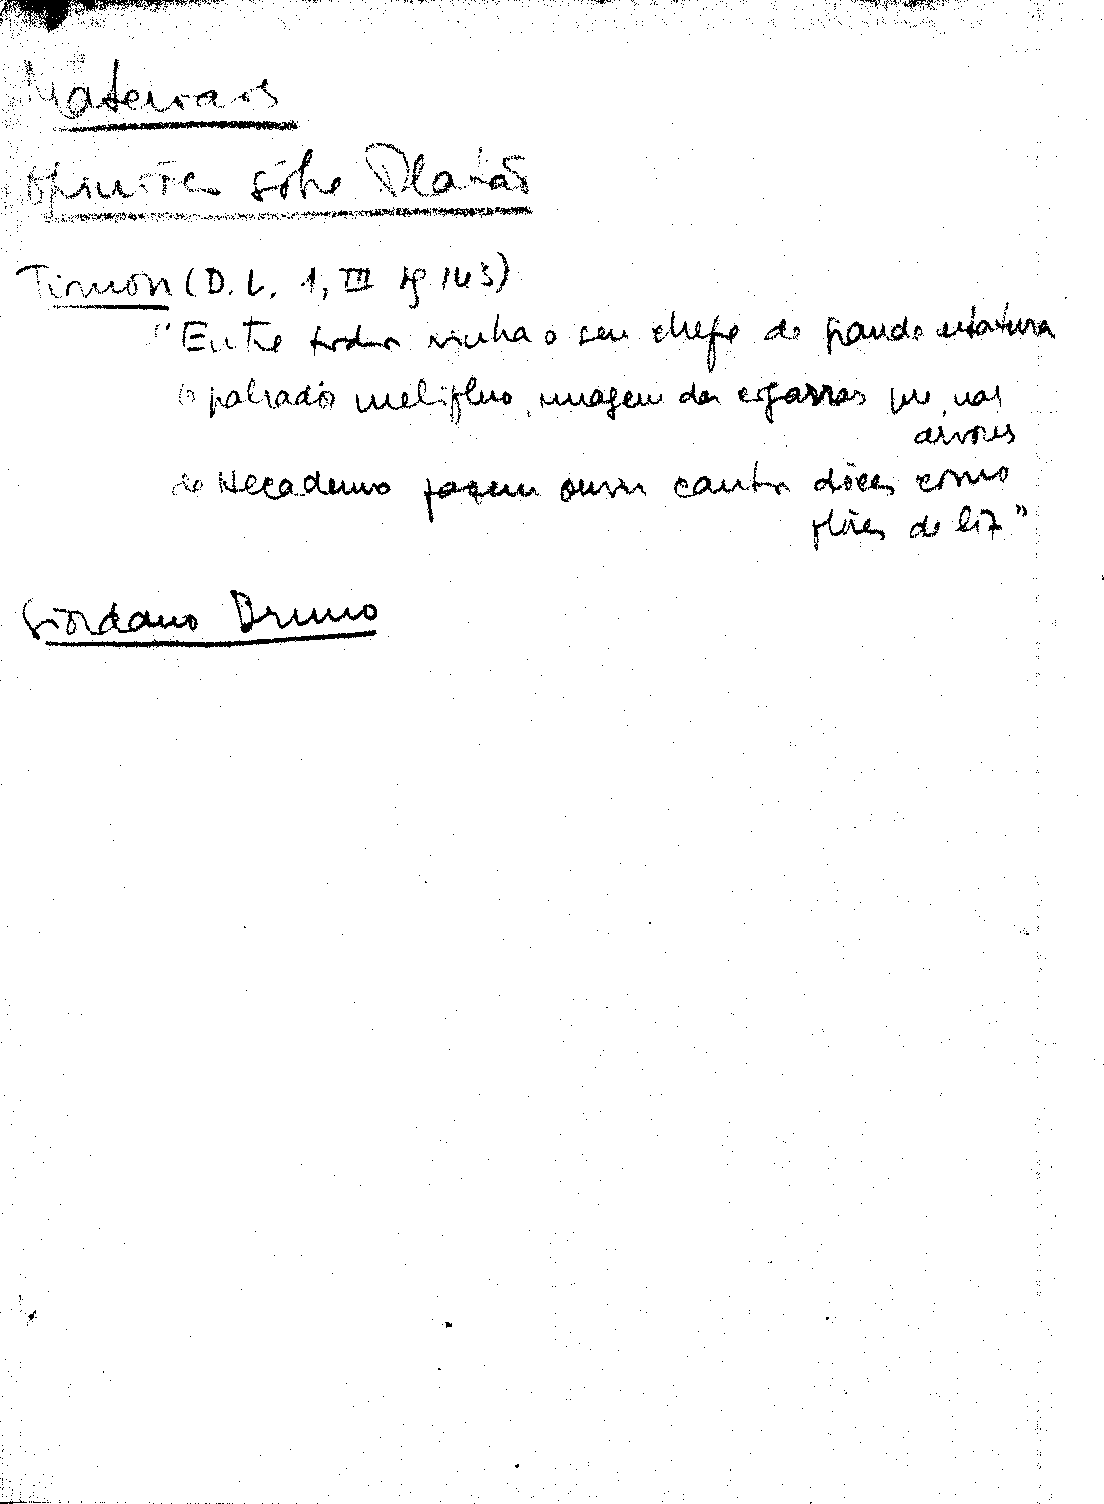 Materiais
Opiniões sôbre Platão
Timon (D. L. 1, III pg 143)
"Entre todos vinha o seu chefe de grande estatura
o palrador melífluo, imagem das cigarras que, nas
árvores
de Hecademo fazem ouvir cantos dôces como
flôres de liz"
Giordano Bruno